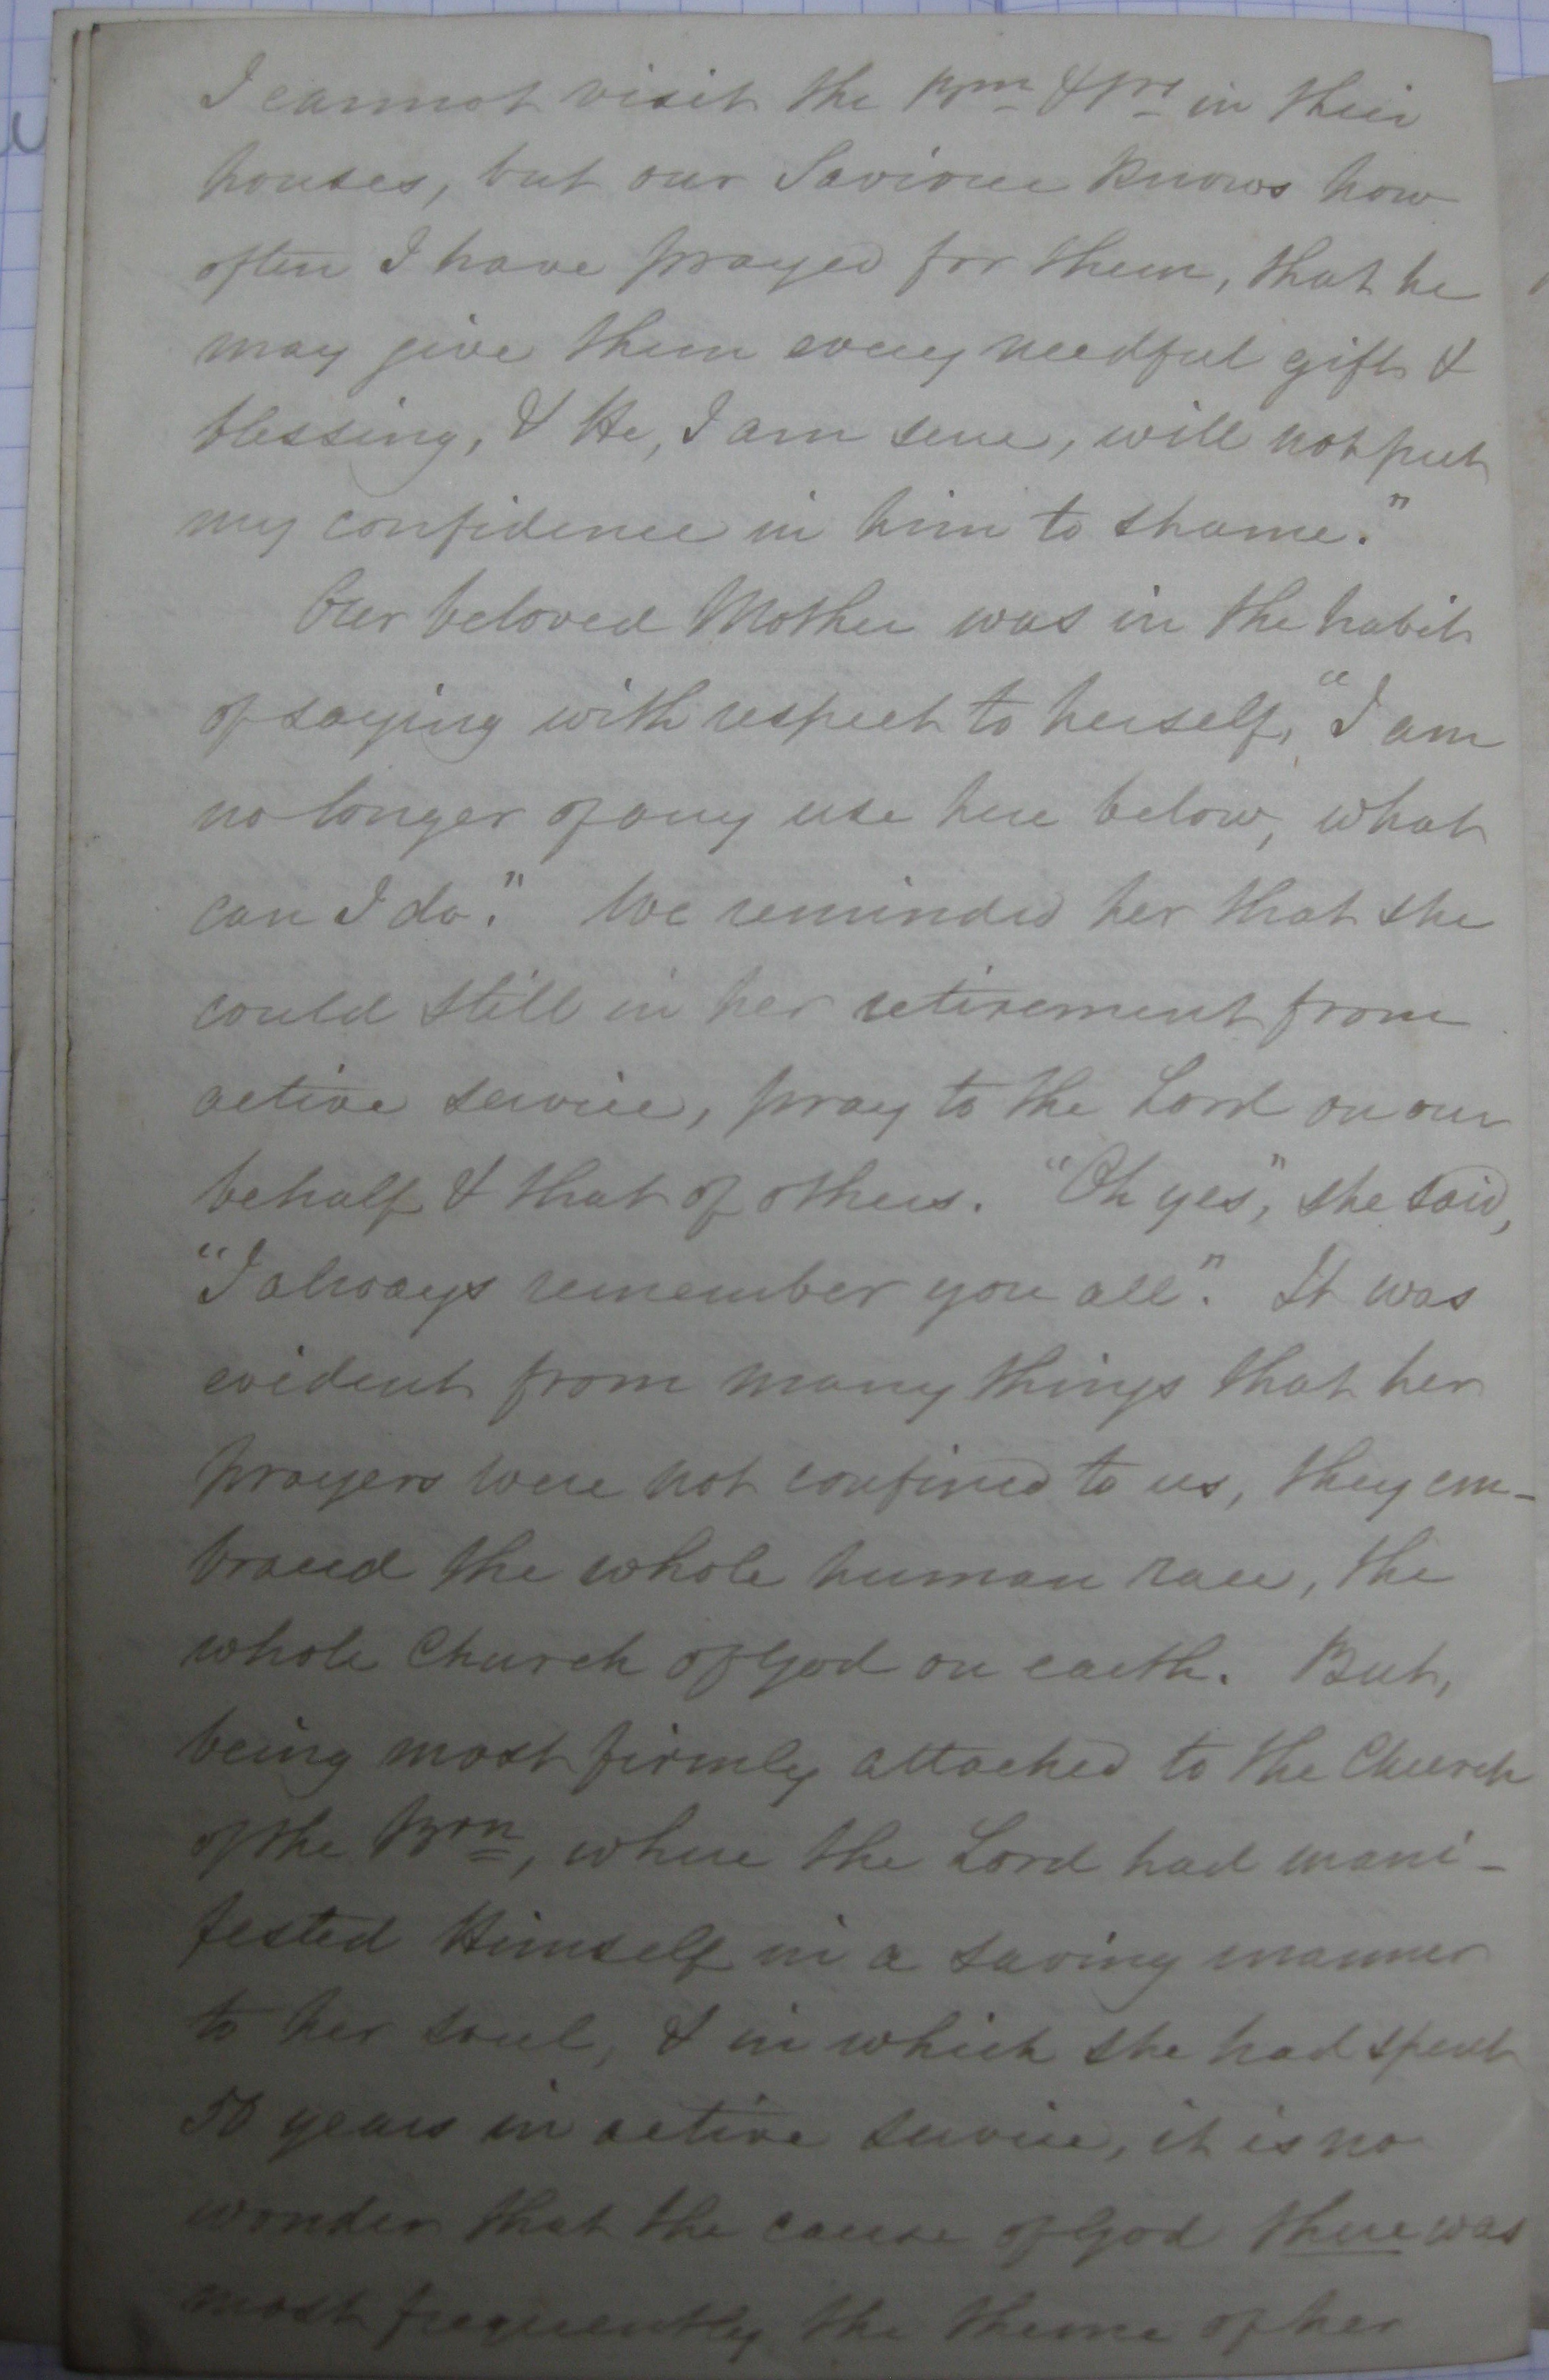 I cannot visit the Brn & Srs in their
houses, but our Saviour knows how
often I have prayed for them, that he
may give them every needful gift &
blessing, & He, I am sure, will not put
my confidence in him to shame."
Our beloved Mother was in the habit
of saying with respect to herself, "I am
no longer of any use here below, what
can I do." We reminded her that she
could still in her retirement from
active service, pray to the Lord on our
behalf & that of others. "Oh yes", she said,
"I always remember you all". It was
evident from many things that her
prayers were not confined to us, they em-
braced the whole human race, the
whole Church of God on earth. But,
being most firmly attached to the Church
of the Brn, where the Lord had mani-
fested Himself in a saving manner
to her soul, & in which she had spent
50 years in active service, it is no
wonder that the cause of God there was
most frequently the theme of her